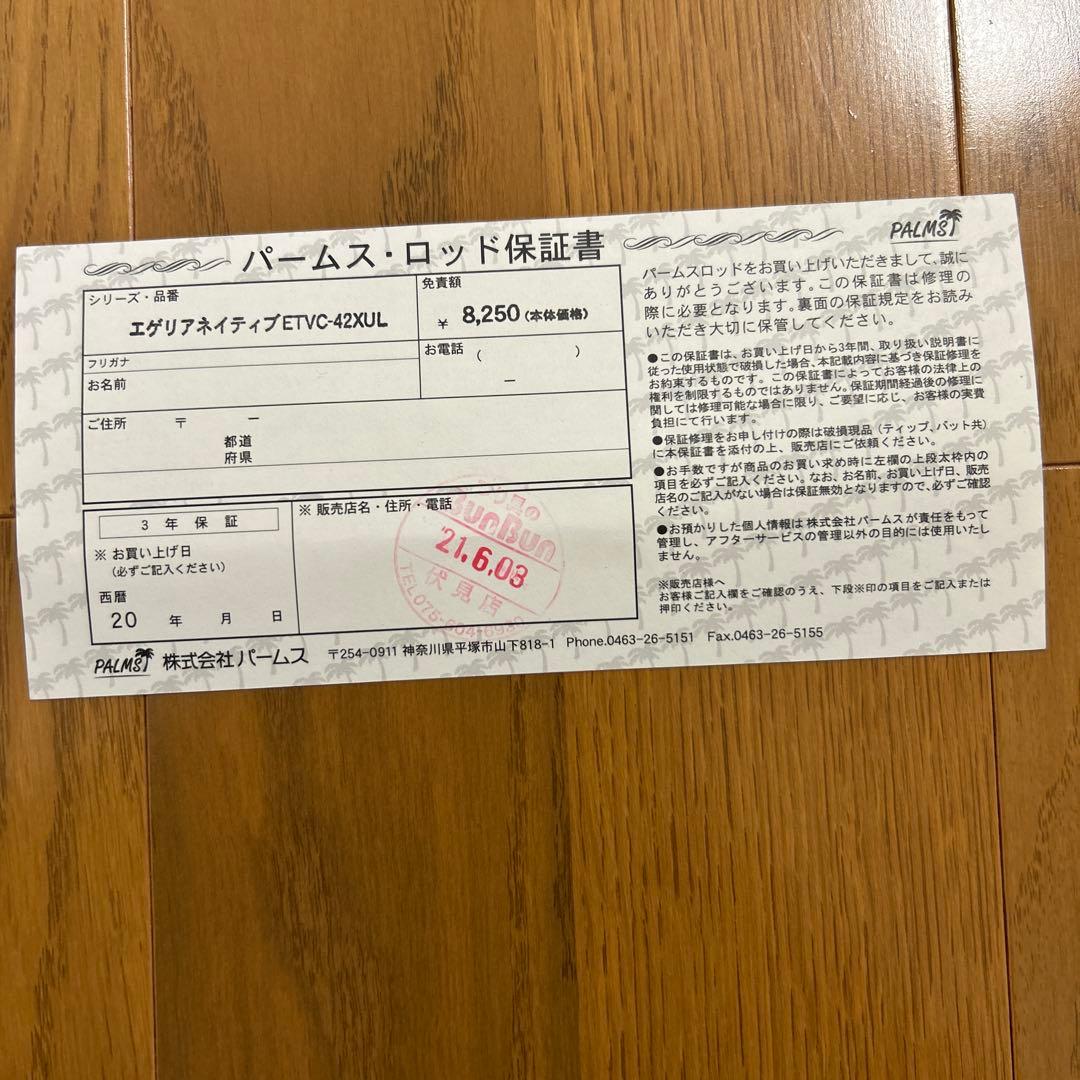 パームス・ロッド保証書
PALMS
シリーズ・品番
エゲリアネイティブETVC-42XUL
免責額
¥ 8,250(本体価格)
フリガナ
お名前
お電話 ( )
－
ご住所 〒 －
都道
府県
3年保証
※ お買い上げ日
(必ずご記入ください)
西暦
20 年 月 日
※ 販売店名・住所・電話
り具の
BunBun
21.6.03
伏見店
PALMS 株式会社パームス 〒254-0911 神奈川県平塚市山下818-1 Phone.0463-26-5151 Fax.0463-26-5155
パームスロッドをお買い上げいただきまして、誠に
ありがとうございます。この保証書は修理の
際に必要となります。裏面の保証規定をお読み
いただき大切に保管してください。
●この保証書は、お買い上げ日から3年間、取り扱い説明書に
従った使用状態で破損した場合、本記載内容に基づき保証修理を
お約束するものです。この保証書によってお客様の法律上の
権利を制限するものではありません。保証期間経過後の修理に
関しては修理可能な場合に限り、ご要望に応じ、お客様の実費
負担にて行います。
●保証修理をお申し付けの際は破損現品(ティップ、バット共)
に本保証書を添付の上、販売店にご依頼ください。
●お手数ですが商品のお買い求め時に左欄の上段太枠内の
項目を必ずご記入ください。なお、お名前、お買い上げ日、販売
店名のご記入がない場合は保証無効となりますので、必ずご確認
ください。
●お預かりした個人情報は 株式会社パームスが責任をもって
管理し、アフターサービスの管理以外の目的には使用いたし
ません。
※販売店様へ
お客様ご記入欄をご確認のうえ、下段※印の項目をご記入または
押印ください。